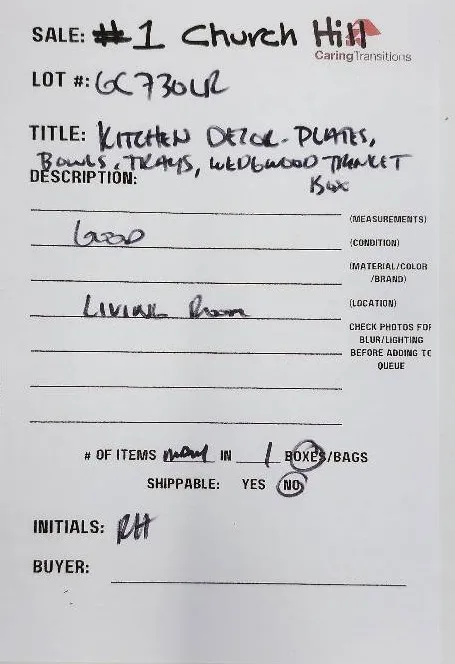 SALE: #1 Church Hill
CaringTransitions
LOT #: GC730LR
TITLE: KITCHEN DECOR - PLATES,
BOWLS, TRAYS, WEDGWOOD TRINKET
BOX
DESCRIPTION:
(MEASUREMENTS)
GOOD (CONDITION)
(MATERIAL/COLOR
/BRAND)
LIVING Room (LOCATION)
CHECK PHOTOS FOR
BLUR/LIGHTING
BEFORE ADDING TO
QUEUE
# OF ITEMS many IN 1 BOXES/BAGS
SHIPPABLE: YES NO
INITIALS: RH
BUYER: